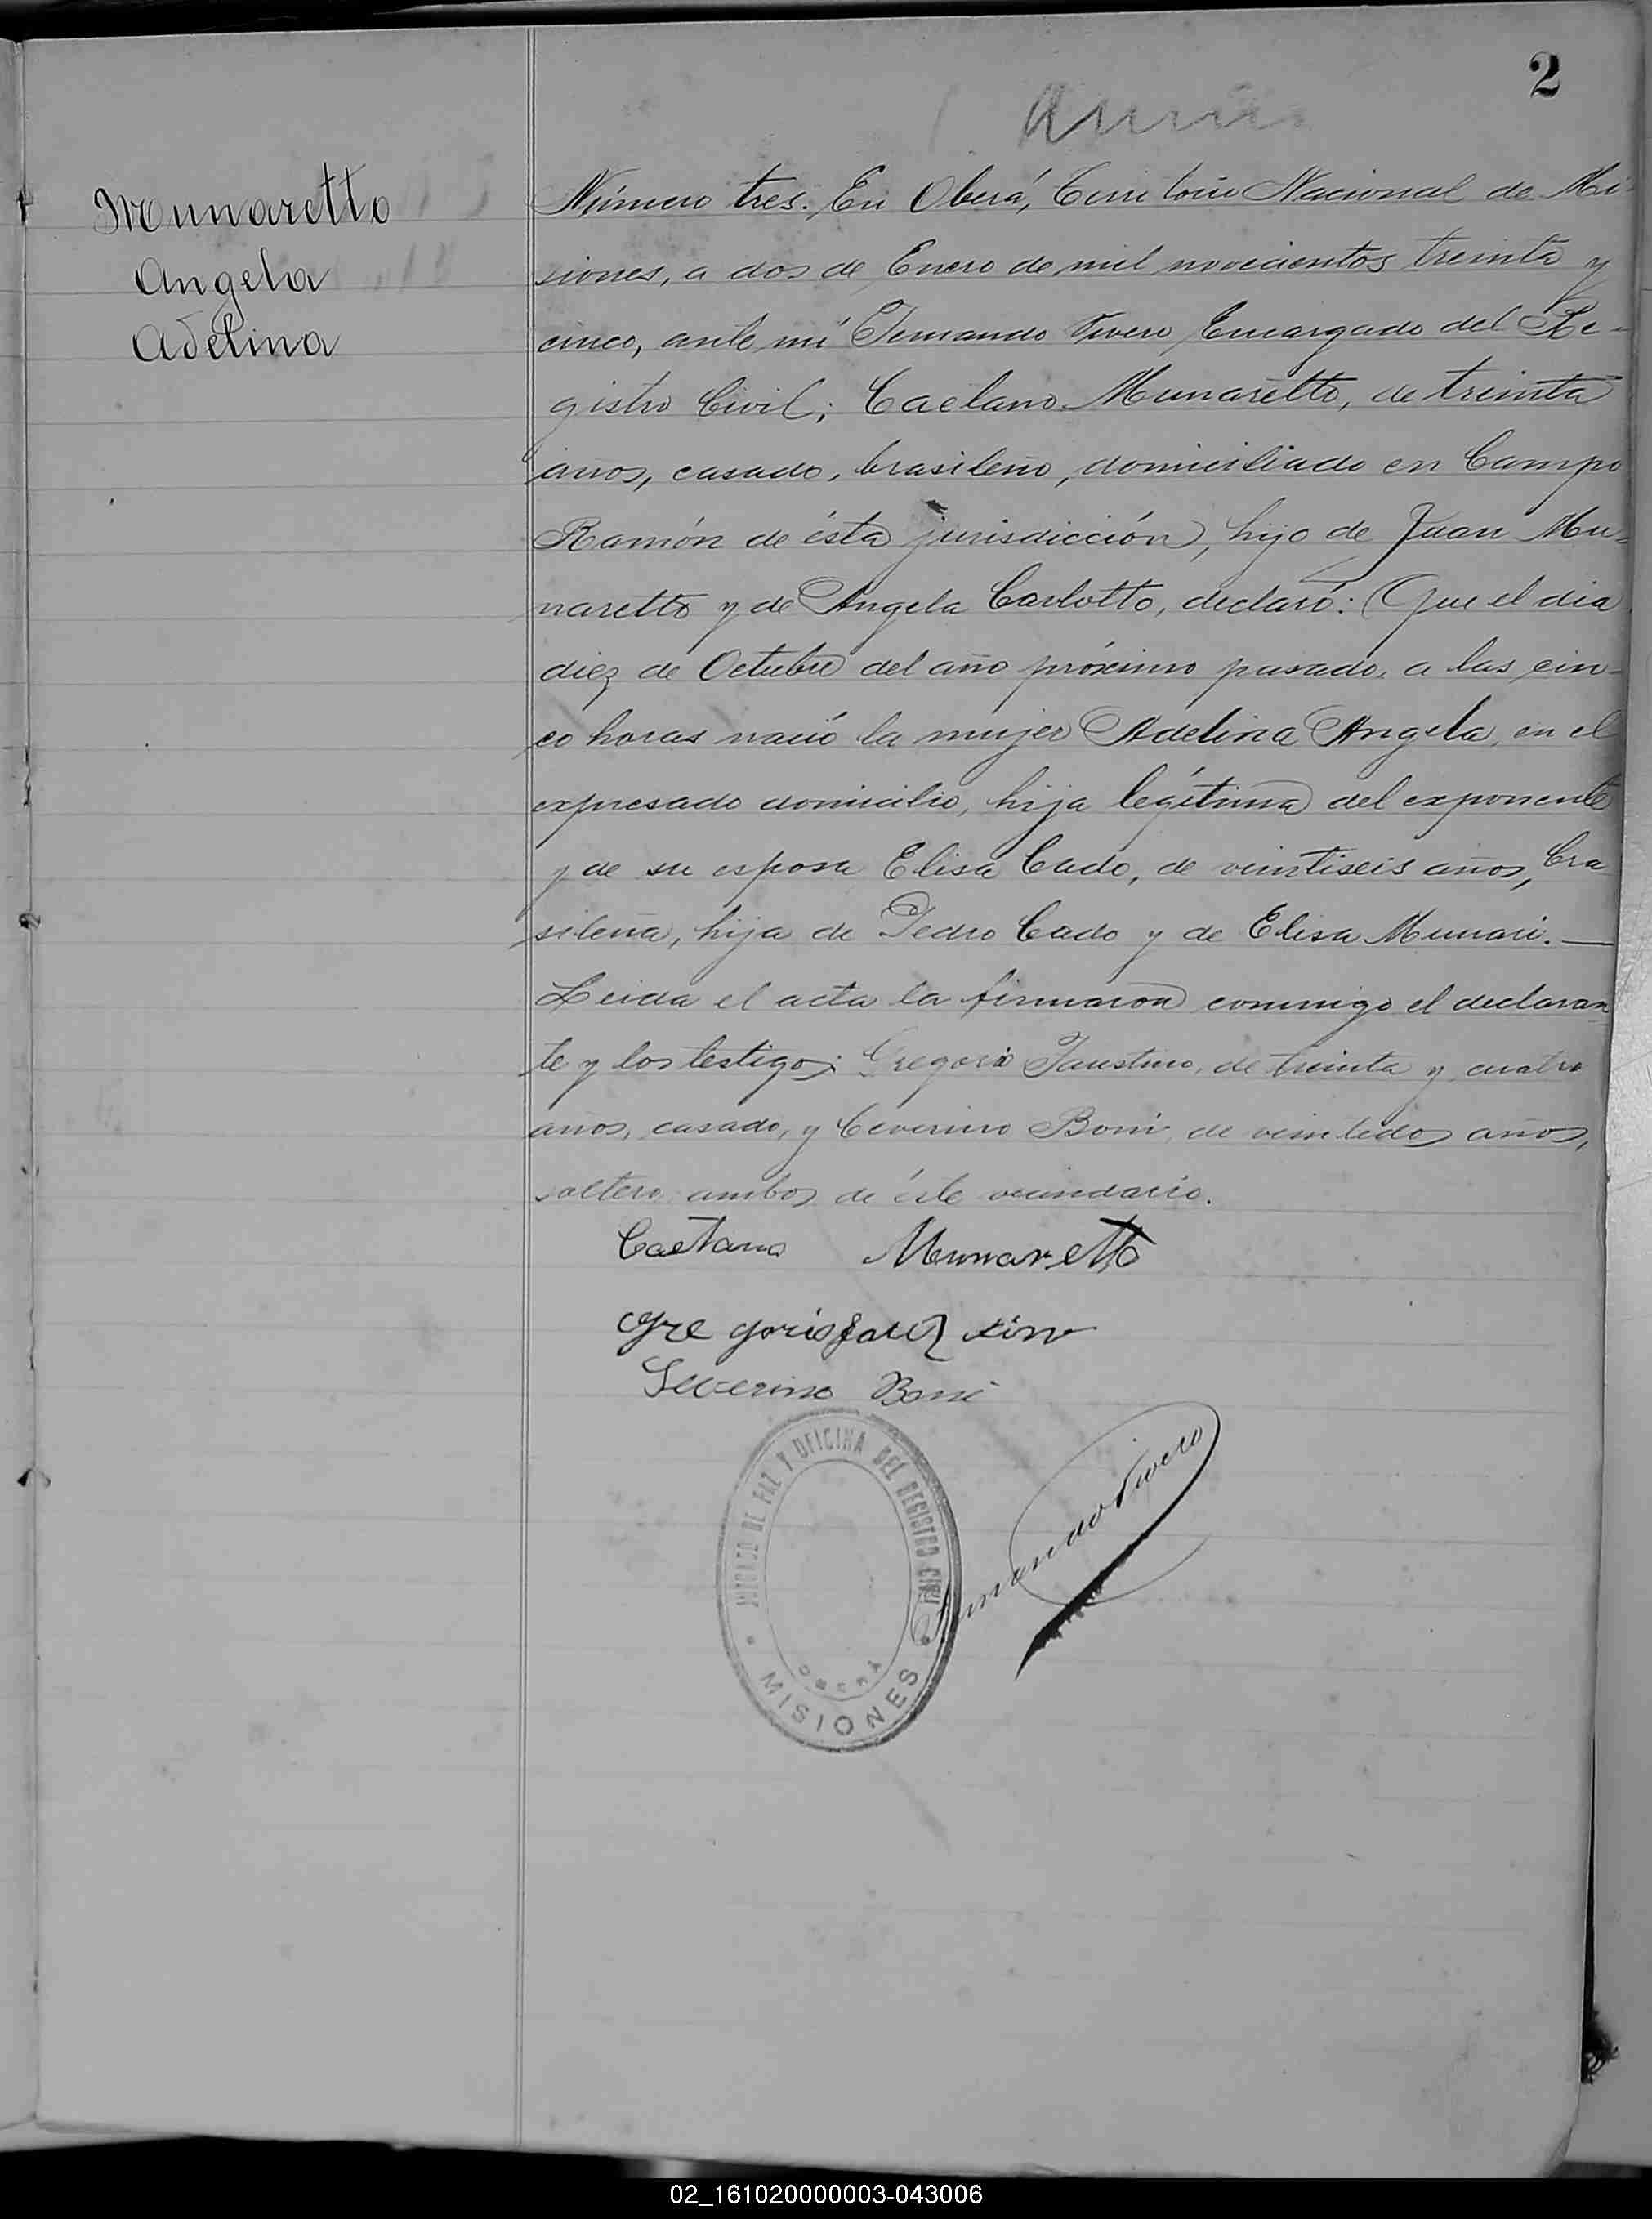 2
Munaretto
Angela
Adelina
Número tres. En Oberá, Territorio Nacional de Mi-
siones, a dos de Enero de mil novecientos treinta y
cinco, ante mí Fernando Vivero Encargado del Re-
gistro Civil; Caetano Munaretto, de treinta
años, casado, brasileño, domiciliado en Campo
Ramón de ésta jurisdicción, hijo de Juan Mu-
naretto y de Angela Carlotto, declaró: Que el dia
diez de Octubre del año próximo pasado, a las cin-
co horas nació la mujer Adelina Angela, en el
expresado domicilio, hija legítima del exponente
y de su esposa Elisa Cado, de veintiseis años, bra
sileña, hija de Pedro Cado y de Elisa Munari.—
Leida el acta la firmaron conmigo el declaran
te y los testigos: Gregorio Faustino, de treinta y cuatro
años, casado, y Ceverino Boni, de veintidos años,
soltero, ambos de éste vecindario.
Caetano Munaretto
Gregorio
Severino Boni
JUZGADO DE PAZ Y OFICINA DEL REGISTRO CIVIL
OBERÁ
MISIONES
Fernando Vivero
02_161020000003-043006